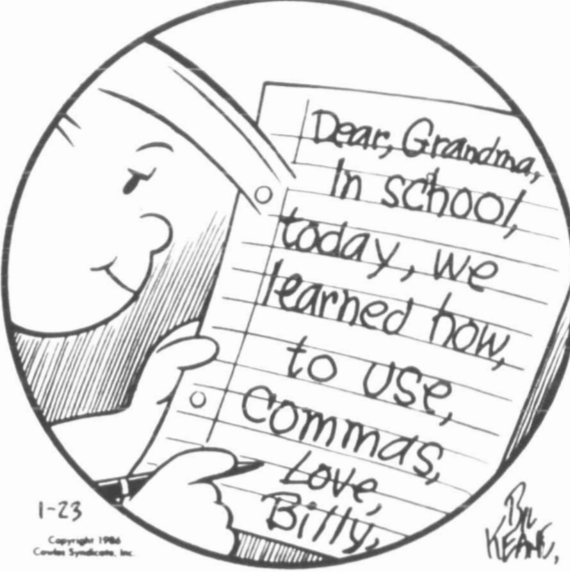 Dear, Grandma,
In school,
today, we
learned how,
to use,
Commas,
Love,
Billy,
1-23
Copyright 1986
Cowles Syndicate, Inc.
BIL
KEANE,